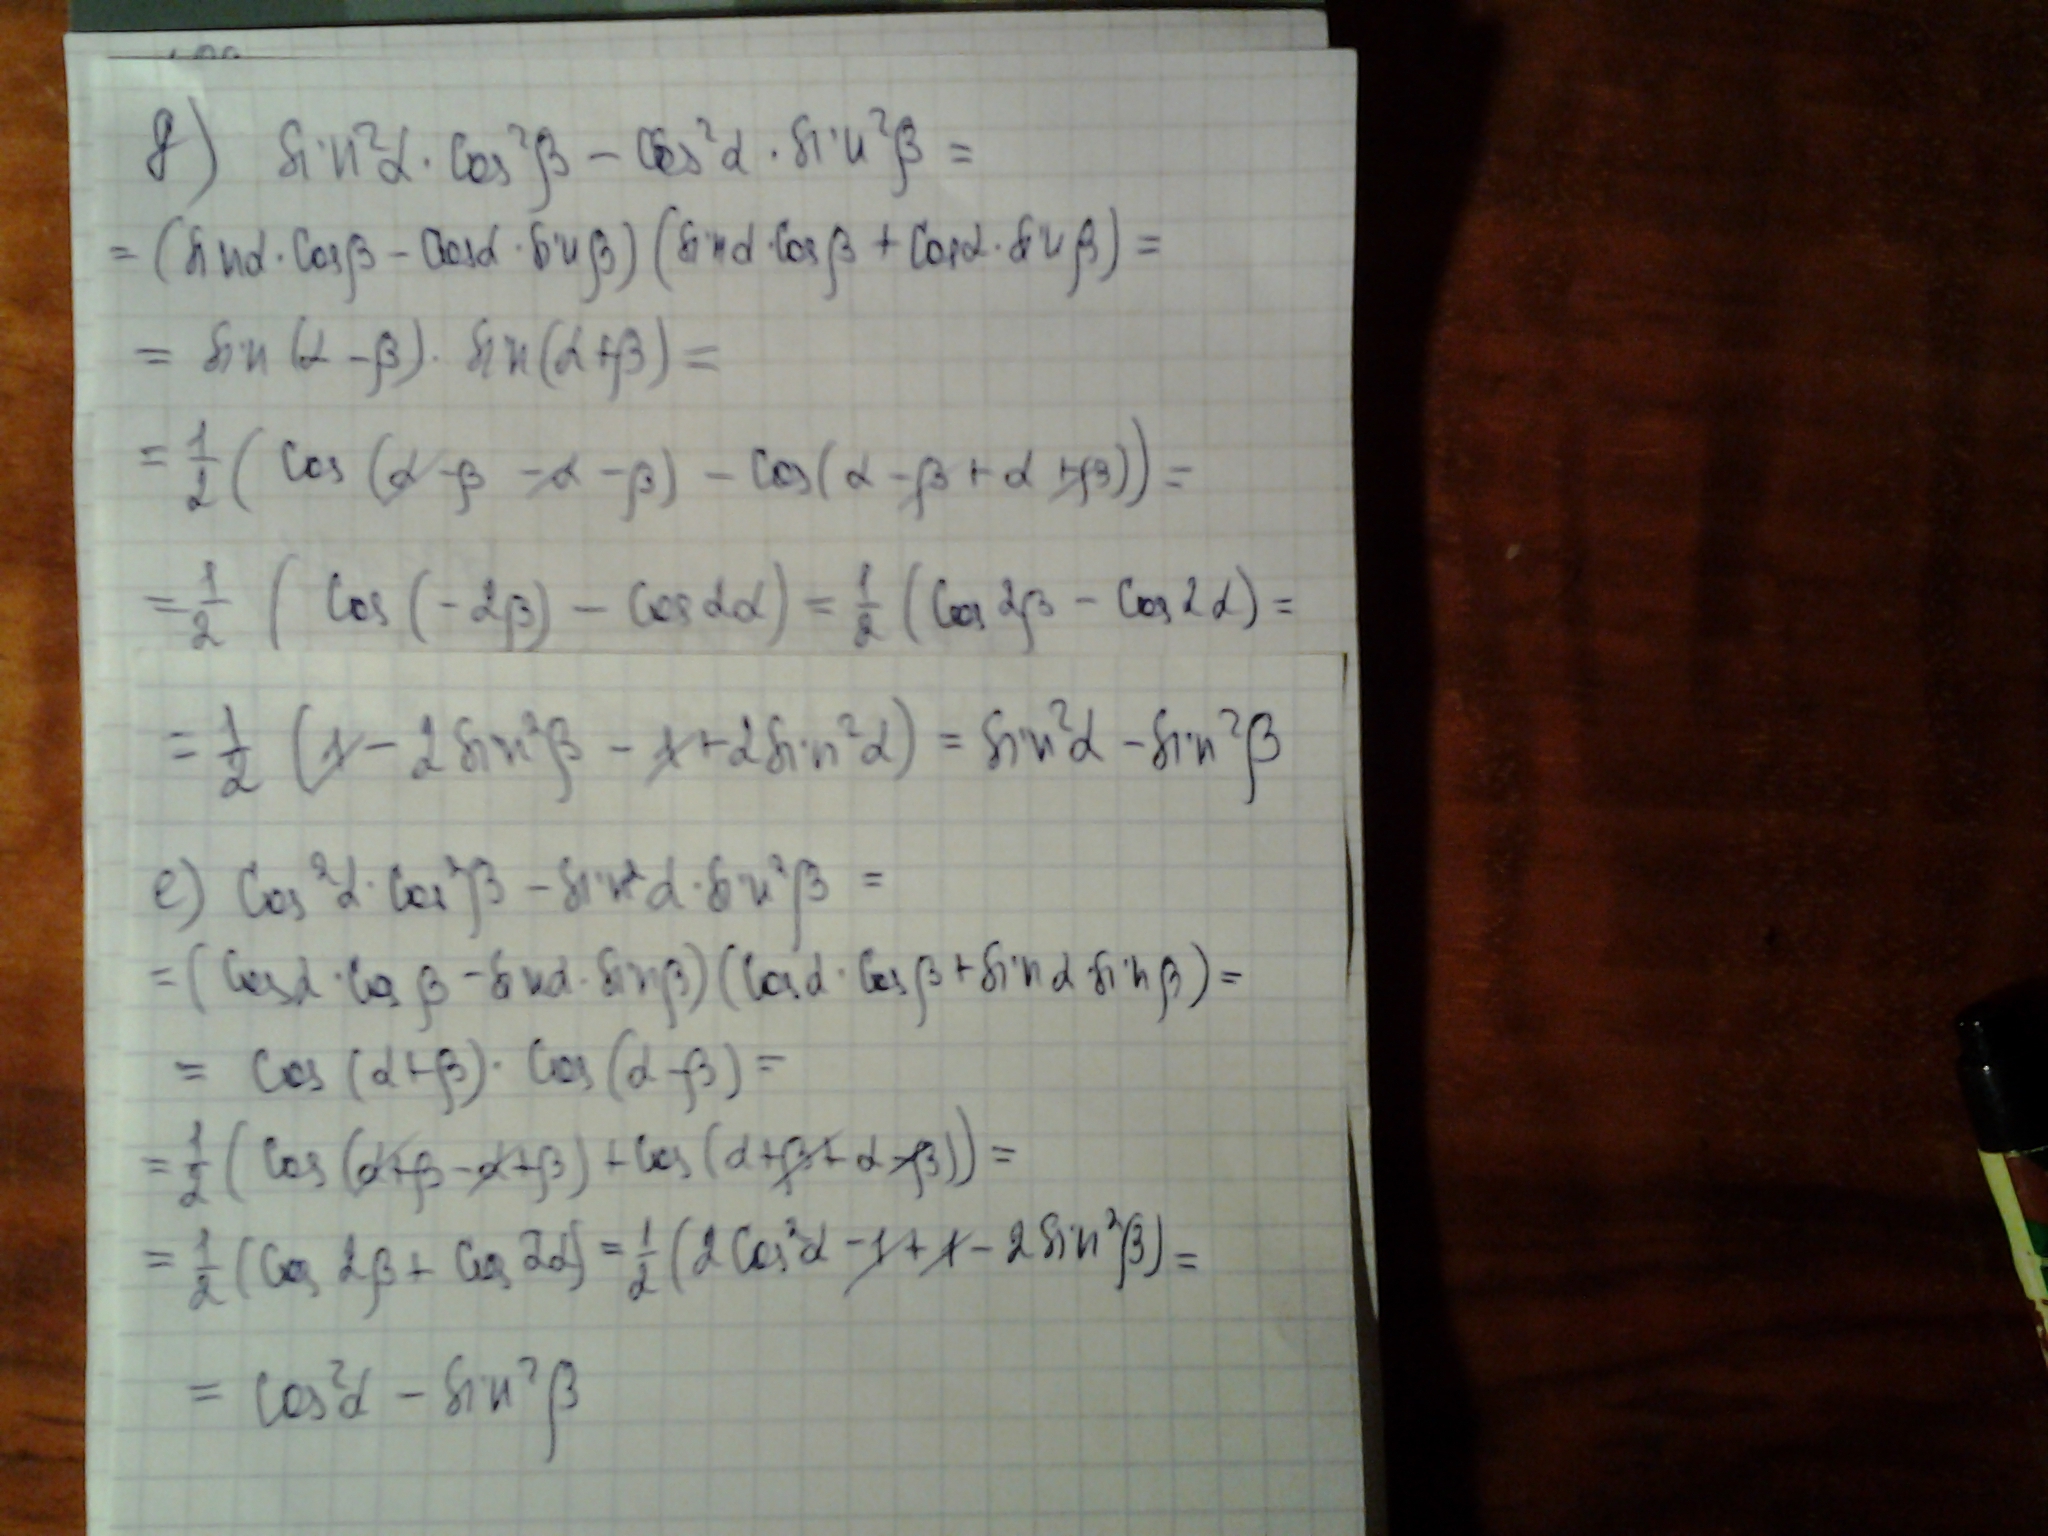 д) sin²α · cos²β − cos²α · sin²β =
= (sinα · cosβ − cosα · sinβ)(sinα · cosβ + cosα · sinβ) =
= sin(α − β) · sin(α + β) =
= 1/2 (cos(α − β − α − β) − cos(α − β + α + β)) =
= 1/2 (cos(−2β) − cos2α) = 1/2 (cos2β − cos2α) =
= 1/2 (1 − 2sin²β − 1 + 2sin²α) = sin²α − sin²β
е) cos²α · cos²β − sin²α · sin²β =
= (cosα · cosβ − sinα · sinβ)(cosα · cosβ + sinα · sinβ) =
= cos(α + β) · cos(α − β) =
= 1/2 (cos(α + β − α + β) + cos(α + β + α − β)) =
= 1/2 (cos2β + cos2α) = 1/2 (2cos²α − 1 + 1 − 2sin²β) =
= cos²α − sin²β